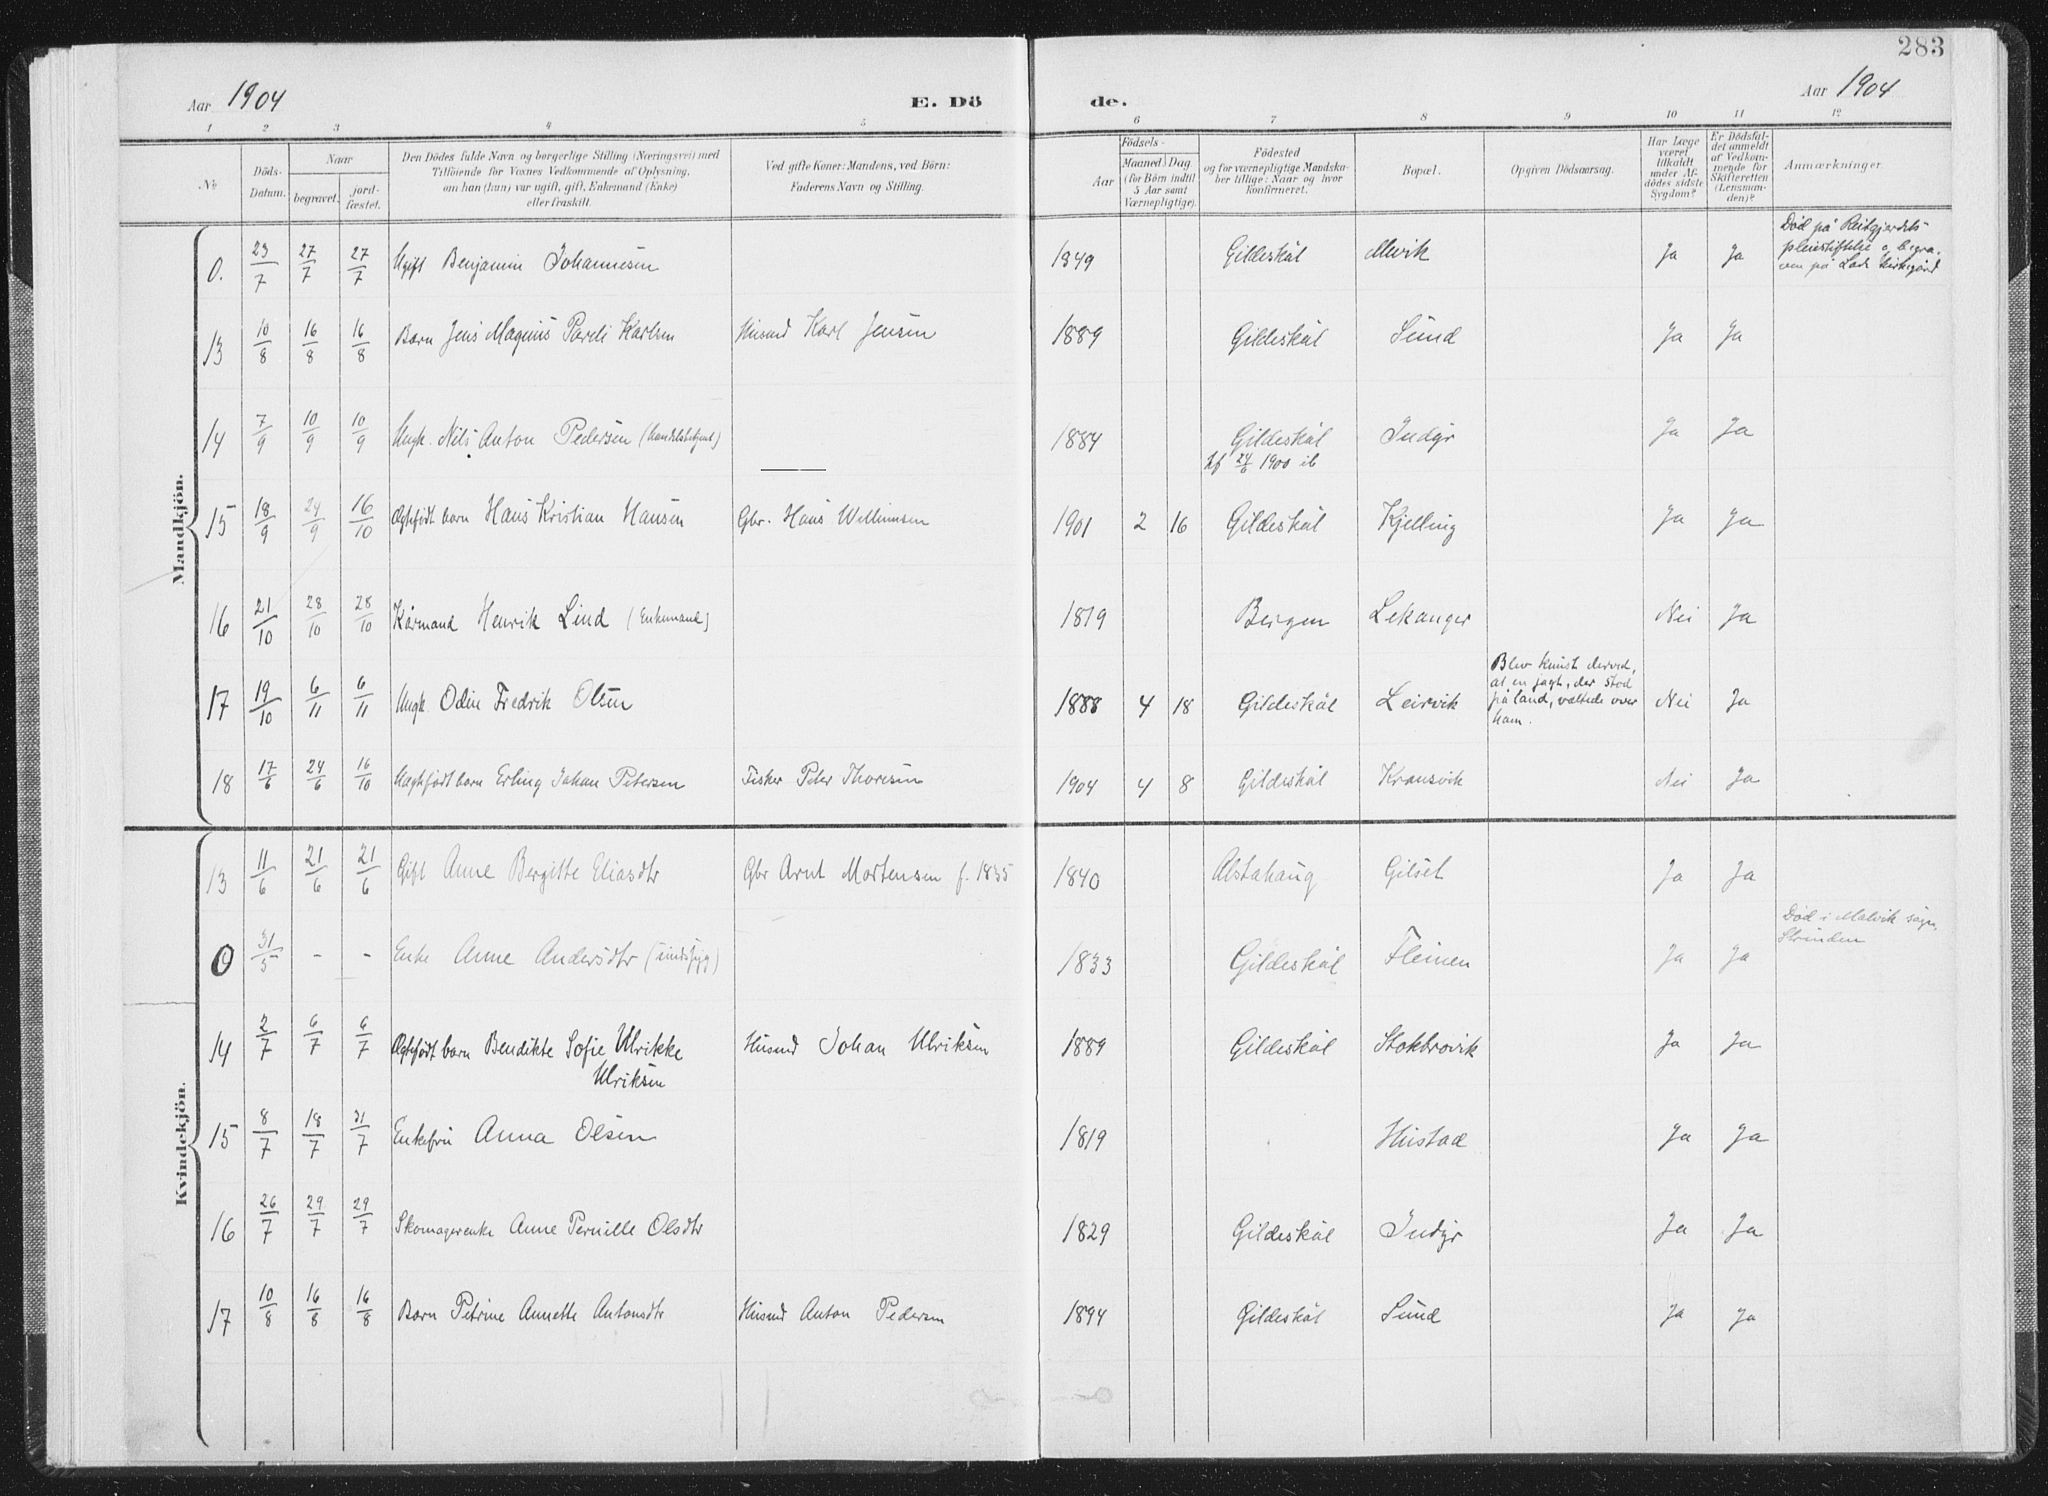 283
Aar 1904
E. Dö
de.
Aar 1904
1 2 3 4 5 6 7 8 9 10 11 12
No
Döds-Datum.
Naar
begravet.
jord-fæstet.
Den Dödes fulde Navn og borgerlige Stilling (Næringsvei) med
Tilföiende for Voxnes Vedkommende af Oplysning,
om han (hun) var ugift, gift, Enkemand (Enke)
eller fraskilt.
Ved gifte Koner: Mandens, ved Börn:
Faderens Navn og Stilling.
Födsels-
Aar
Maaned. Dag
(for Börn indtil
5 Aar samt
Værnepligtige).
Födested
og for værnepligtige Mandska-
ber tillige: Naar og hvor
konfirmeret.
Bopæl.
Opgiven Dödsaarsag.
Har Læge
været
tilkaldt
under Af-
dödes sidste
Sygdom?
Er Dödsfal-
det anmeldt
af Vedkom-
mende for
Skifteretten
(Lensman-
den)?
Anmærkninger.
Mandkjön.
0. 23/7 27/7 27/7 Ugift Benjamin Johannesen 1849 Gildeskål Mevik Ja Ja Død på Reitgjerdets pleiestiftelse o. begraven på Lade kirkegård
13 10/8 16/8 16/8 Barn Jens Magnus Pareli Karlsen Husmd Karl Jensen 1889 Gildeskål Sund Ja Ja
14 7/9 10/9 10/9 Ungk. Nils Anton Pedersen (handelsbetjent) 1884 Gildeskål Indyr Ja Ja
kf 24/6 1900 ib
15 18/9 24/9 16/10 Ægtefødt barn Hans Kristian Hansen Gbr. Hans Willumsen 1901 2 16 Gildeskål Kjelling Ja Ja
16 21/10 28/10 28/10 Kårmand Henrik Lind (Enkemand) 1819 Bergen Lekanger Nei Ja
17 19/10 6/11 6/11 Ungk. Odin Fredrik Olsen 1888 4 18 Gildeskål Leirvik Blev knust derved, at en jagt, der stod på land, væltede over ham. Nei Ja
18 17/6 24/6 16/10 Uægtefødt barn Erling Johan Petersen Fisker Peter Thoresen 1904 4 8 Gildeskål Kransvik Nei Ja
Kvindekjön.
13 11/6 21/6 21/6 Gift Anne Bergitte Eliasdtr Gbr Arnt Mortensen f. 1835 1840 Alstahaug Gilset Ja Ja
0 31/5 - - Enke Anne Andersdtr (sindssyg) 1833 Gildeskål Fleinen Ja Ja Død i Malvik sogn, Strinden
14 2/7 6/7 6/7 Ægtefødt barn Bendikte Sofie Ulrikke Husmd Johan Ulriksen 1889 Gildeskål Stokbrovik Ja Ja
Ulriksen
15 8/7 18/7 31/7 Enkefru Anna Olsen 1819 Hustad Ja Ja
16 26/7 29/7 29/7 Skomagerenke Anne Pernille Olsdtr 1829 Gildeskål Indyr Ja Ja
17 10/8 16/8 16/8 Barn Petrine Annette Antonsdtr Husmd Anton Pedersen 1894 Gildeskål Sund Ja Ja